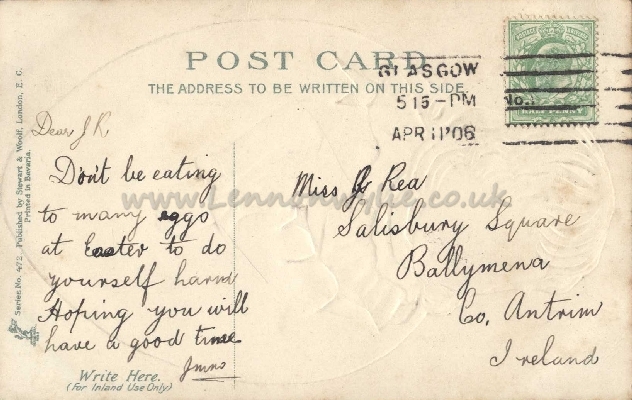 POST CARD
THE ADDRESS TO BE WRITTEN ON THIS SIDE
GLASGOW
5 15-PM
APR 11 '06
No.1
HALF PENNY
Series No. 472. Published by Stewart & Woolf, London, E. C.
Printed in Bavaria.
Dear J R,
Don't be eating
to many eggs
at Easter to do
yourself harm
Hoping you will
have a good time
Write Here.
(For Inland Use Only)
Miss J Rea
Salisbury Square
Ballymena
Co, Antrim
Ireland